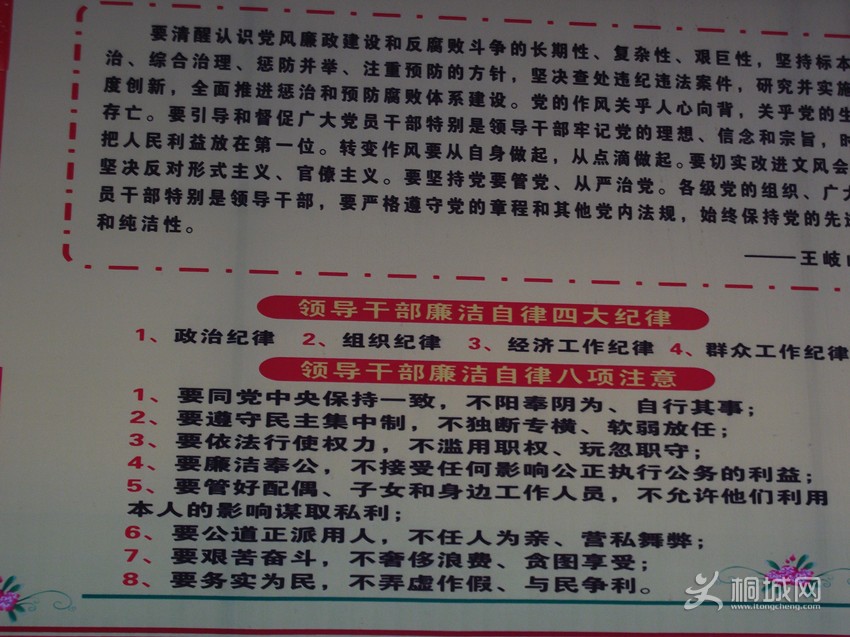 要清醒认识党风廉政建设和反腐败斗争的长期性、复杂性、艰巨性，坚持标本
治、综合治理、惩防并举、注重预防的方针，坚决查处违纪违法案件，研究并实施
度创新，全面推进惩治和预防腐败体系建设。党的作风关乎人心向背，关乎党的生
存亡。要引导和督促广大党员干部特别是领导干部牢记党的理想、信念和宗旨，时
把人民利益放在第一位。转变作风要从自身做起，从点滴做起。要切实改进文风会
坚决反对形式主义、官僚主义。要坚持党要管党、从严治党。各级党的组织、广大
员干部特别是领导干部，要严格遵守党的章程和其他党内法规，始终保持党的先进
和纯洁性。
——王岐山
领导干部廉洁自律四大纪律
1、政治纪律 2、组织纪律 3、经济工作纪律 4、群众工作纪律
领导干部廉洁自律八项注意
1、要同党中央保持一致，不阳奉阴为、自行其事；
2、要遵守民主集中制，不独断专横、软弱放任；
3、要依法行使权力，不滥用职权、玩忽职守；
4、要廉洁奉公，不接受任何影响公正执行公务的利益；
5、要管好配偶、子女和身边工作人员，不允许他们利用
本人的影响谋取私利；
6、要公道正派用人，不任人为亲、营私舞弊；
7、要艰苦奋斗，不奢侈浪费、贪图享受；
8、要务实为民，不弄虚作假、与民争利。
桐城网
www.itongcheng.com